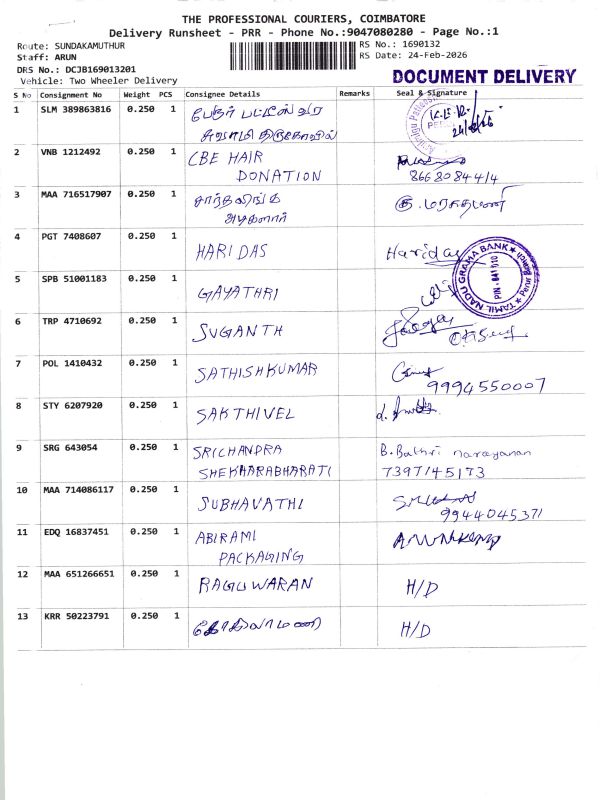 THE PROFESSIONAL COURIERS, COIMBATORE
Delivery Runsheet - PRR - Phone No.:9047080280 - Page No.:1
Route: SUNDAKAMUTHUR
RS No.: 1690132
Staff: ARUN
RS Date: 24-Feb-2026
DRS No.: DCJB169013201
Vehicle: Two Wheeler Delivery
DOCUMENT DELIVERY
S No Consignment No Weight PCS Consignee Details Remarks Seal & Signature
1 SLM 389863816 0.250 1 பேரூர் பட்டீஸ்வர
சுவாமி திருக்கோவில்
2 VNB 1212492 0.250 1 CBE HAIR
DONATION
8668084414
3 MAA 716517907 0.250 1 சாந்தலிங்க
அடிகளார்
4 PGT 7408607 0.250 1 HARI DAS Haridas
TAMIL NADU GRAMA BANK
Perur Branch
PIN - 641 010
5 SPB 51001183 0.250 1 GAYATHRI
6 TRP 4710692 0.250 1 SUGANTH
7 POL 1410432 0.250 1 SATHISHKUMAR
9994550007
8 STY 6207920 0.250 1 SAKTHIVEL
9 SRG 643054 0.250 1 SRICHANDRA B. Bathri narayanan
SHEKHARABHARATI 7397145173
10 MAA 714086117 0.250 1 SUBHAVATHI
9944045371
11 EDQ 16837451 0.250 1 ABIRAMI
PACKAGING
12 MAA 651266651 0.250 1 RAGUWARAN H/D
13 KRR 50223791 0.250 1 கோகிலாமணி H/D